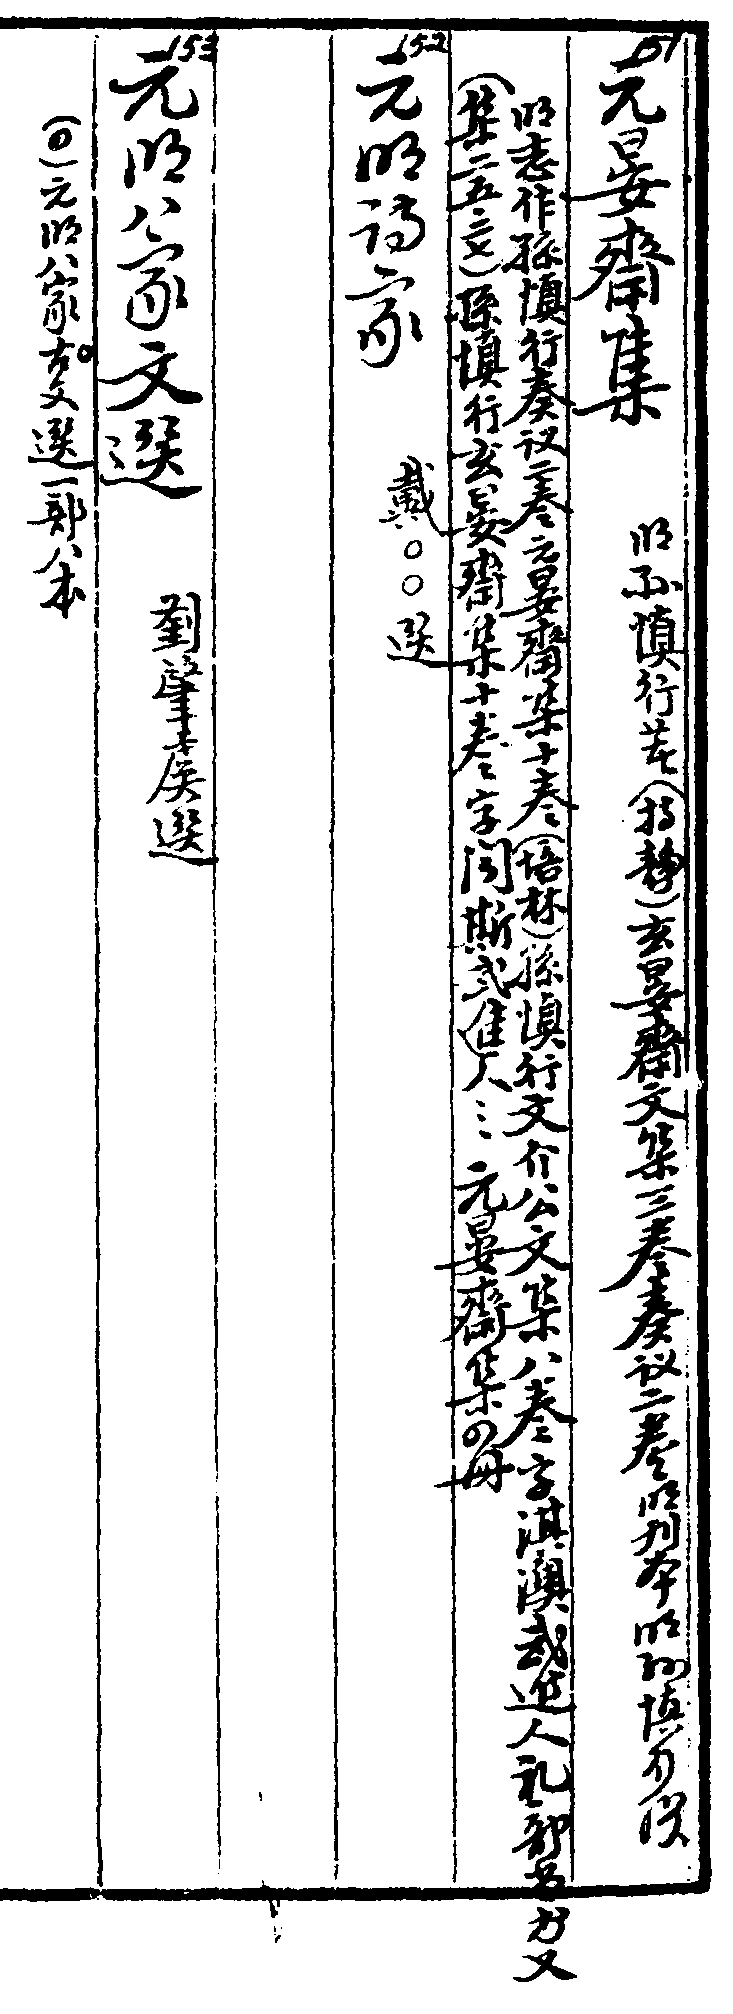 151
元晏齋集 明孫慎行著(持静)玄晏齋文集三卷奏议二卷明刊本明孙慎行撰
明志作孫慎行奏议二卷元晏齋集十卷(培林)孫慎行文介公文集八卷字淇澳武進人礼部尚书又
(集二五文)孫慎行玄晏齋集十卷字聞斯武進人… 元晏齋集四册
152
元明詩家 戴○○選
153
元明八家文選 劉肇慶選
(四)元明八家古文選一部八本